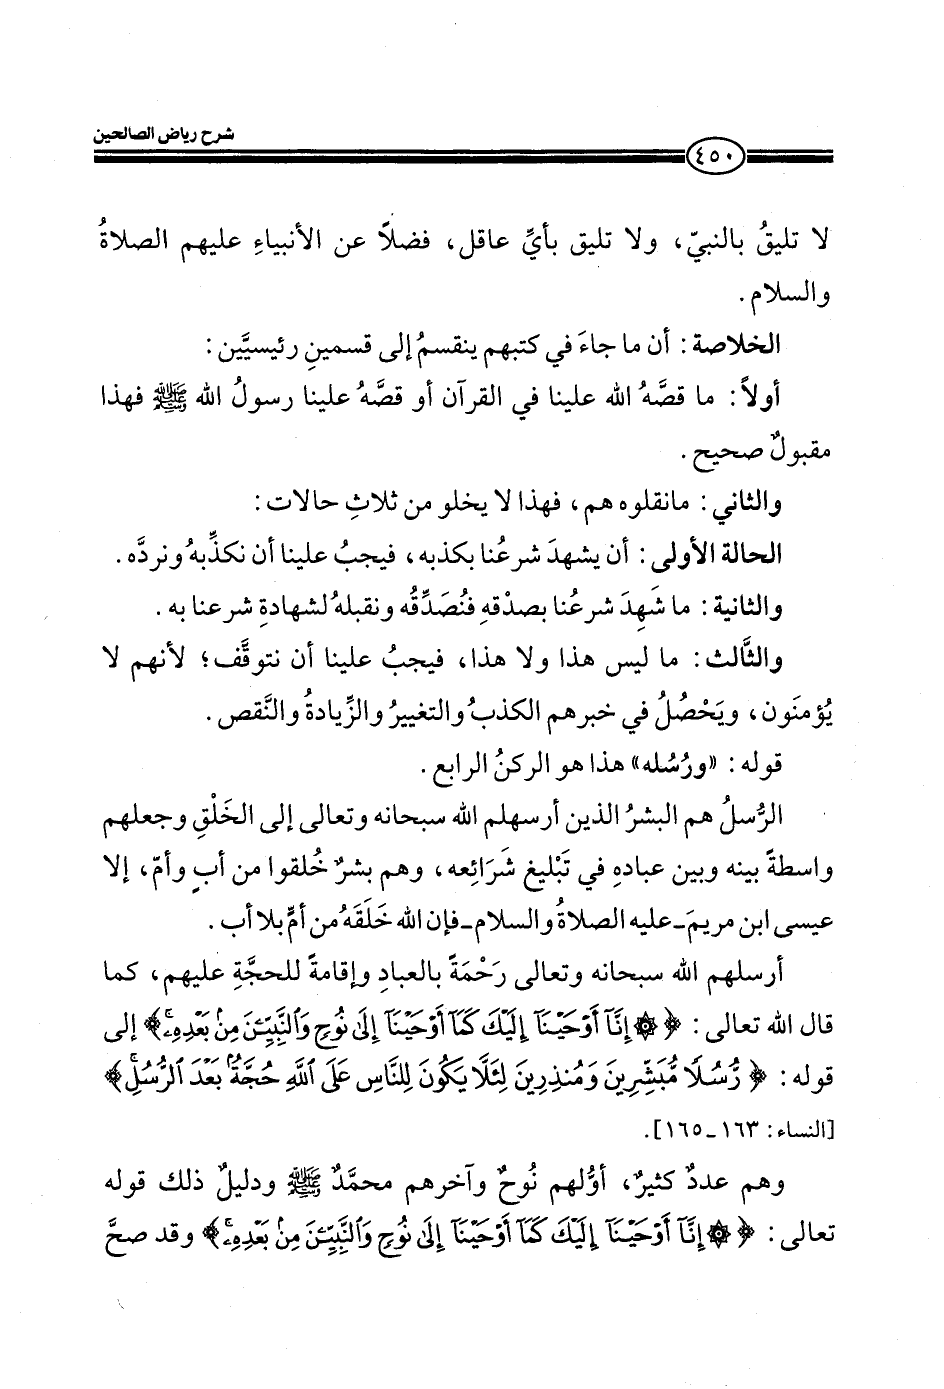 شرح رياض الصالحين
٤٥٠
لا تليقُ بالنبيّ، ولا تليق بأيِّ عاقل، فضلاً عن الأنبياءِ عليهم الصلاةُ
والسلام.
الخلاصة: أن ما جاءَ في كتبهم ينقسمُ إلى قسمينِ رئيسيَّين:
أولاً: ما قصَّهُ الله علينا في القرآن أو قصَّهُ علينا رسولُ الله ﷺ فهذا
مقبولٌ صحيح.
والثاني: مانقلوه هم، فهذا لا يخلو من ثلاثِ حالات:
الحالة الأولى: أن يشهدَ شرعُنا بكذبه، فيجبُ علينا أن نكذِّبهُ ونردَّه.
والثانية: ما شَهِدَ شرعُنا بصدْقهِ فنُصَدِّقُه ونقبلهُ لشهادةِ شرعنا به.
والثَّالث: ما ليس هذا ولا هذا، فيجبُ علينا أن نتوقَّف؛ لأنهم لا
يُؤمنَون، ويَحْصُلُ في خبرهم الكذبُ والتغييرُ والزِّيادةُ والنَّقص.
قوله: «ورُسُله» هذا هو الركنُ الرابع.
الرُّسلُ هم البشرُ الذين أرسهلم الله سبحانه وتعالى إلى الخَلْقِ وجعلهم
واسطةً بينه وبين عبادهِ في تَبْليغ شَرَائِعه، وهم بشرٌ خُلقوا من أبٍ وأمّ، إلا
عيسى ابن مريمَ ـ عليه الصلاةُ والسلام ـ فإن الله خَلَقَهُ من أمٍّ بلا أب.
أرسلهم الله سبحانه وتعالى رَحْمَةً بالعبادِ وإقامةً للحجَّةِ عليهم، كما
قال الله تعالى: ﴿ ۞ إِنَّآ أَوْحَيْنَآ إِلَيْكَ كَمَآ أَوْحَيْنَآ إِلَىٰ نُوحٍ وَٱلنَّبِيِّـۧنَ مِنۢ بَعْدِهِۦۚ﴾ إلى
قوله: ﴿ رُّسُلًا مُّبَشِّرِينَ وَمُنذِرِينَ لِئَلَّا يَكُونَ لِلنَّاسِ عَلَى ٱللَّهِ حُجَّةٌۢ بَعْدَ ٱلرُّسُلِۚ﴾
[النساء: ١٦٣ـ١٦٥].
وهم عددٌ كثيرٌ، أوُّلهم نُوحٌ وآخرهم محمَّدٌ ﷺ ودليلُ ذلك قوله
تعالى: ﴿ ۞ إِنَّآ أَوْحَيْنَآ إِلَيْكَ كَمَآ أَوْحَيْنَآ إِلَىٰ نُوحٍ وَٱلنَّبِيِّـۧنَ مِنۢ بَعْدِهِۦۚ﴾ وقد صحَّ